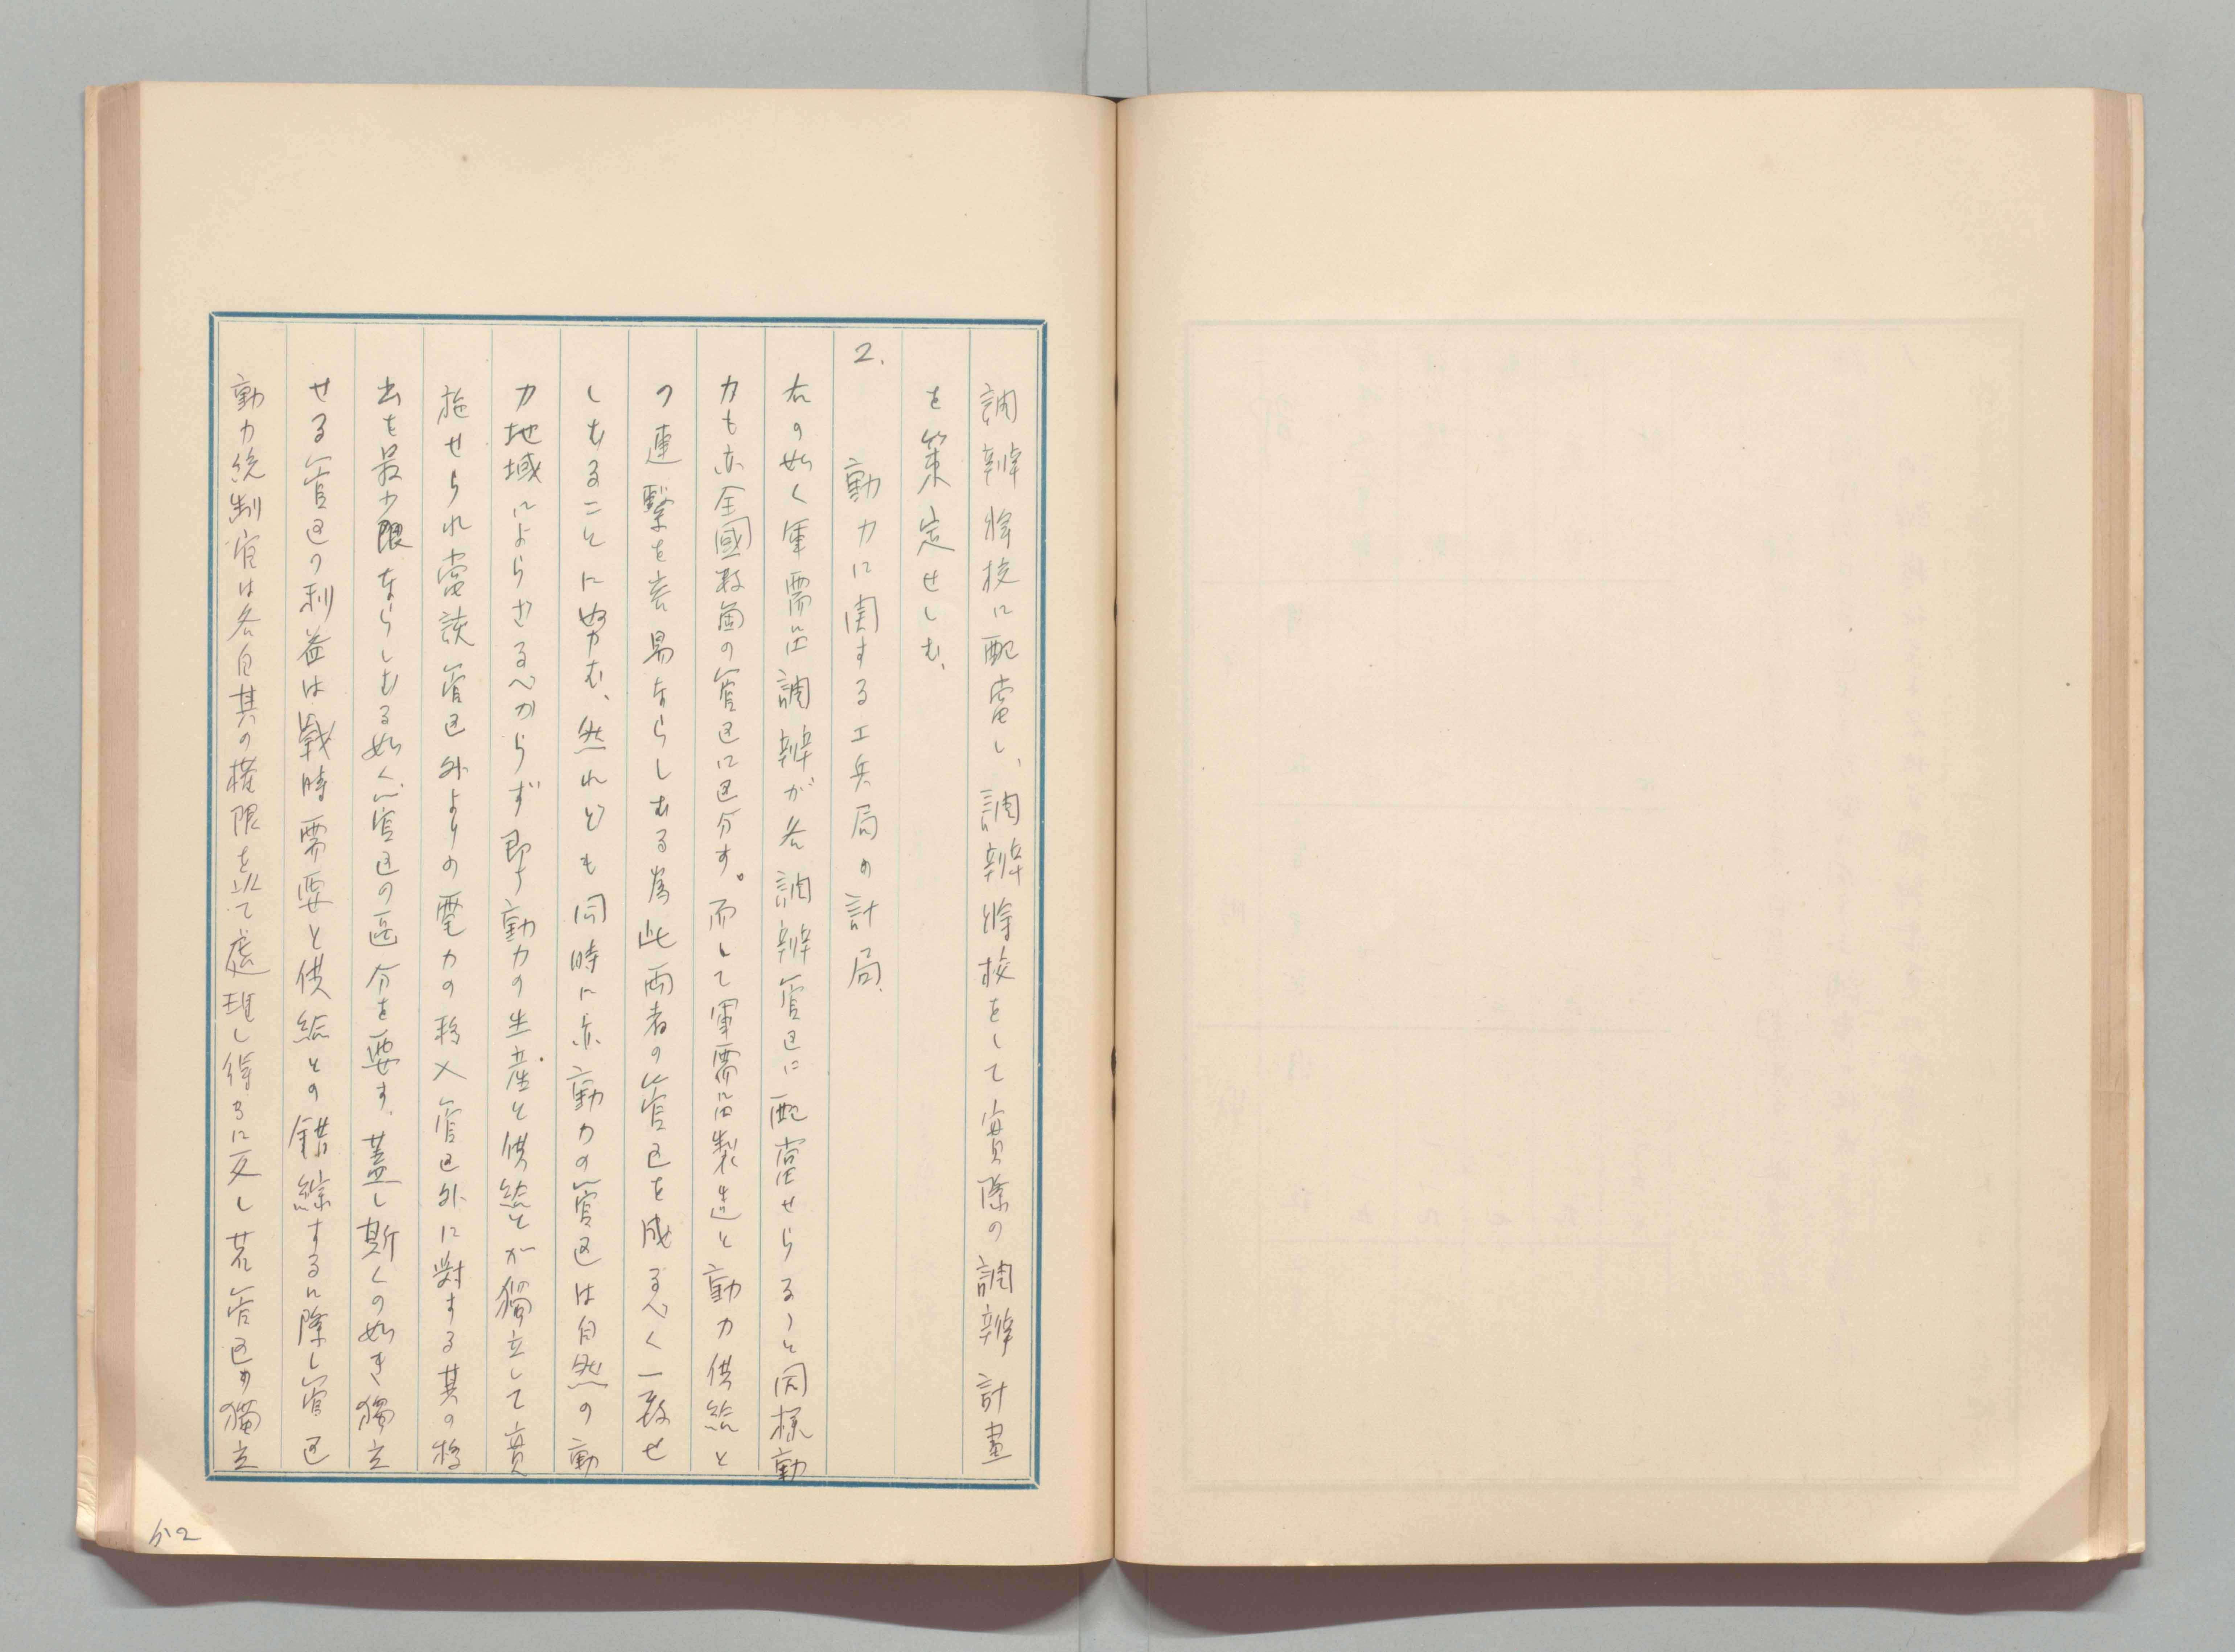 調辨将校に配當し、調辨将校をして實際の調辨計畫
を策定せしむ、
2. 動力に関する工兵局の計局.
右の如く軍需品調辨が各調辨管区に配當せらるゝと同様動
力も亦全國数箇の管区に区分す。而して軍需品製造と動力供給と
の連繋を容易ならしむる為此両者の管区を成るべく一致せ
しむることに努む、然れども同時に亦動力の管区は自然の動
力地域によらざるべからず即ち動力の生産と供給とが獨立して實
施せられ當該管区外よりの電力の移入管区外に対する其の移
出を最少限ならしむる如く管区の区分を要す、蓋し斯くの如き獨立
せる管区の利益は戦時需要と供給との錯綜するに際し管区
動力統制官は各自其の権限を以て處理し得るに反し若管区が獨立
512